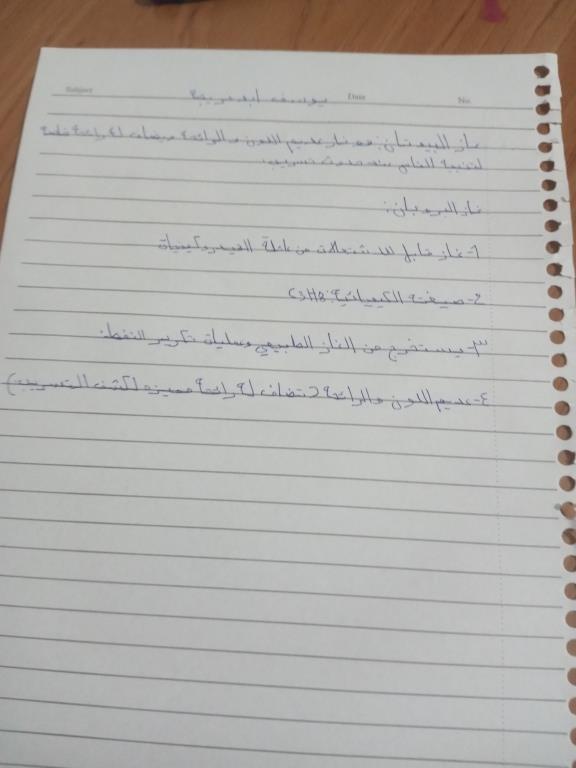 Subject يوسف ابو عريبة Date No.
غاز البيوتان: هو غاز عديم اللون والرائحة ويضاف له رائحة
لتنبية الناس عند حدوث تسريب.
غاز البروبان:
1- غاز قابل للاشتعلات من عائلة الهيدروكربونات
2- صيغته الكيميائية: C3H8
٣- يستخرج من الغاز الطبيعي وعمليات تكرير النفط.
٤- عديم اللون والرائحة (تضاف له رائحة مميزه لكشف التسريب)